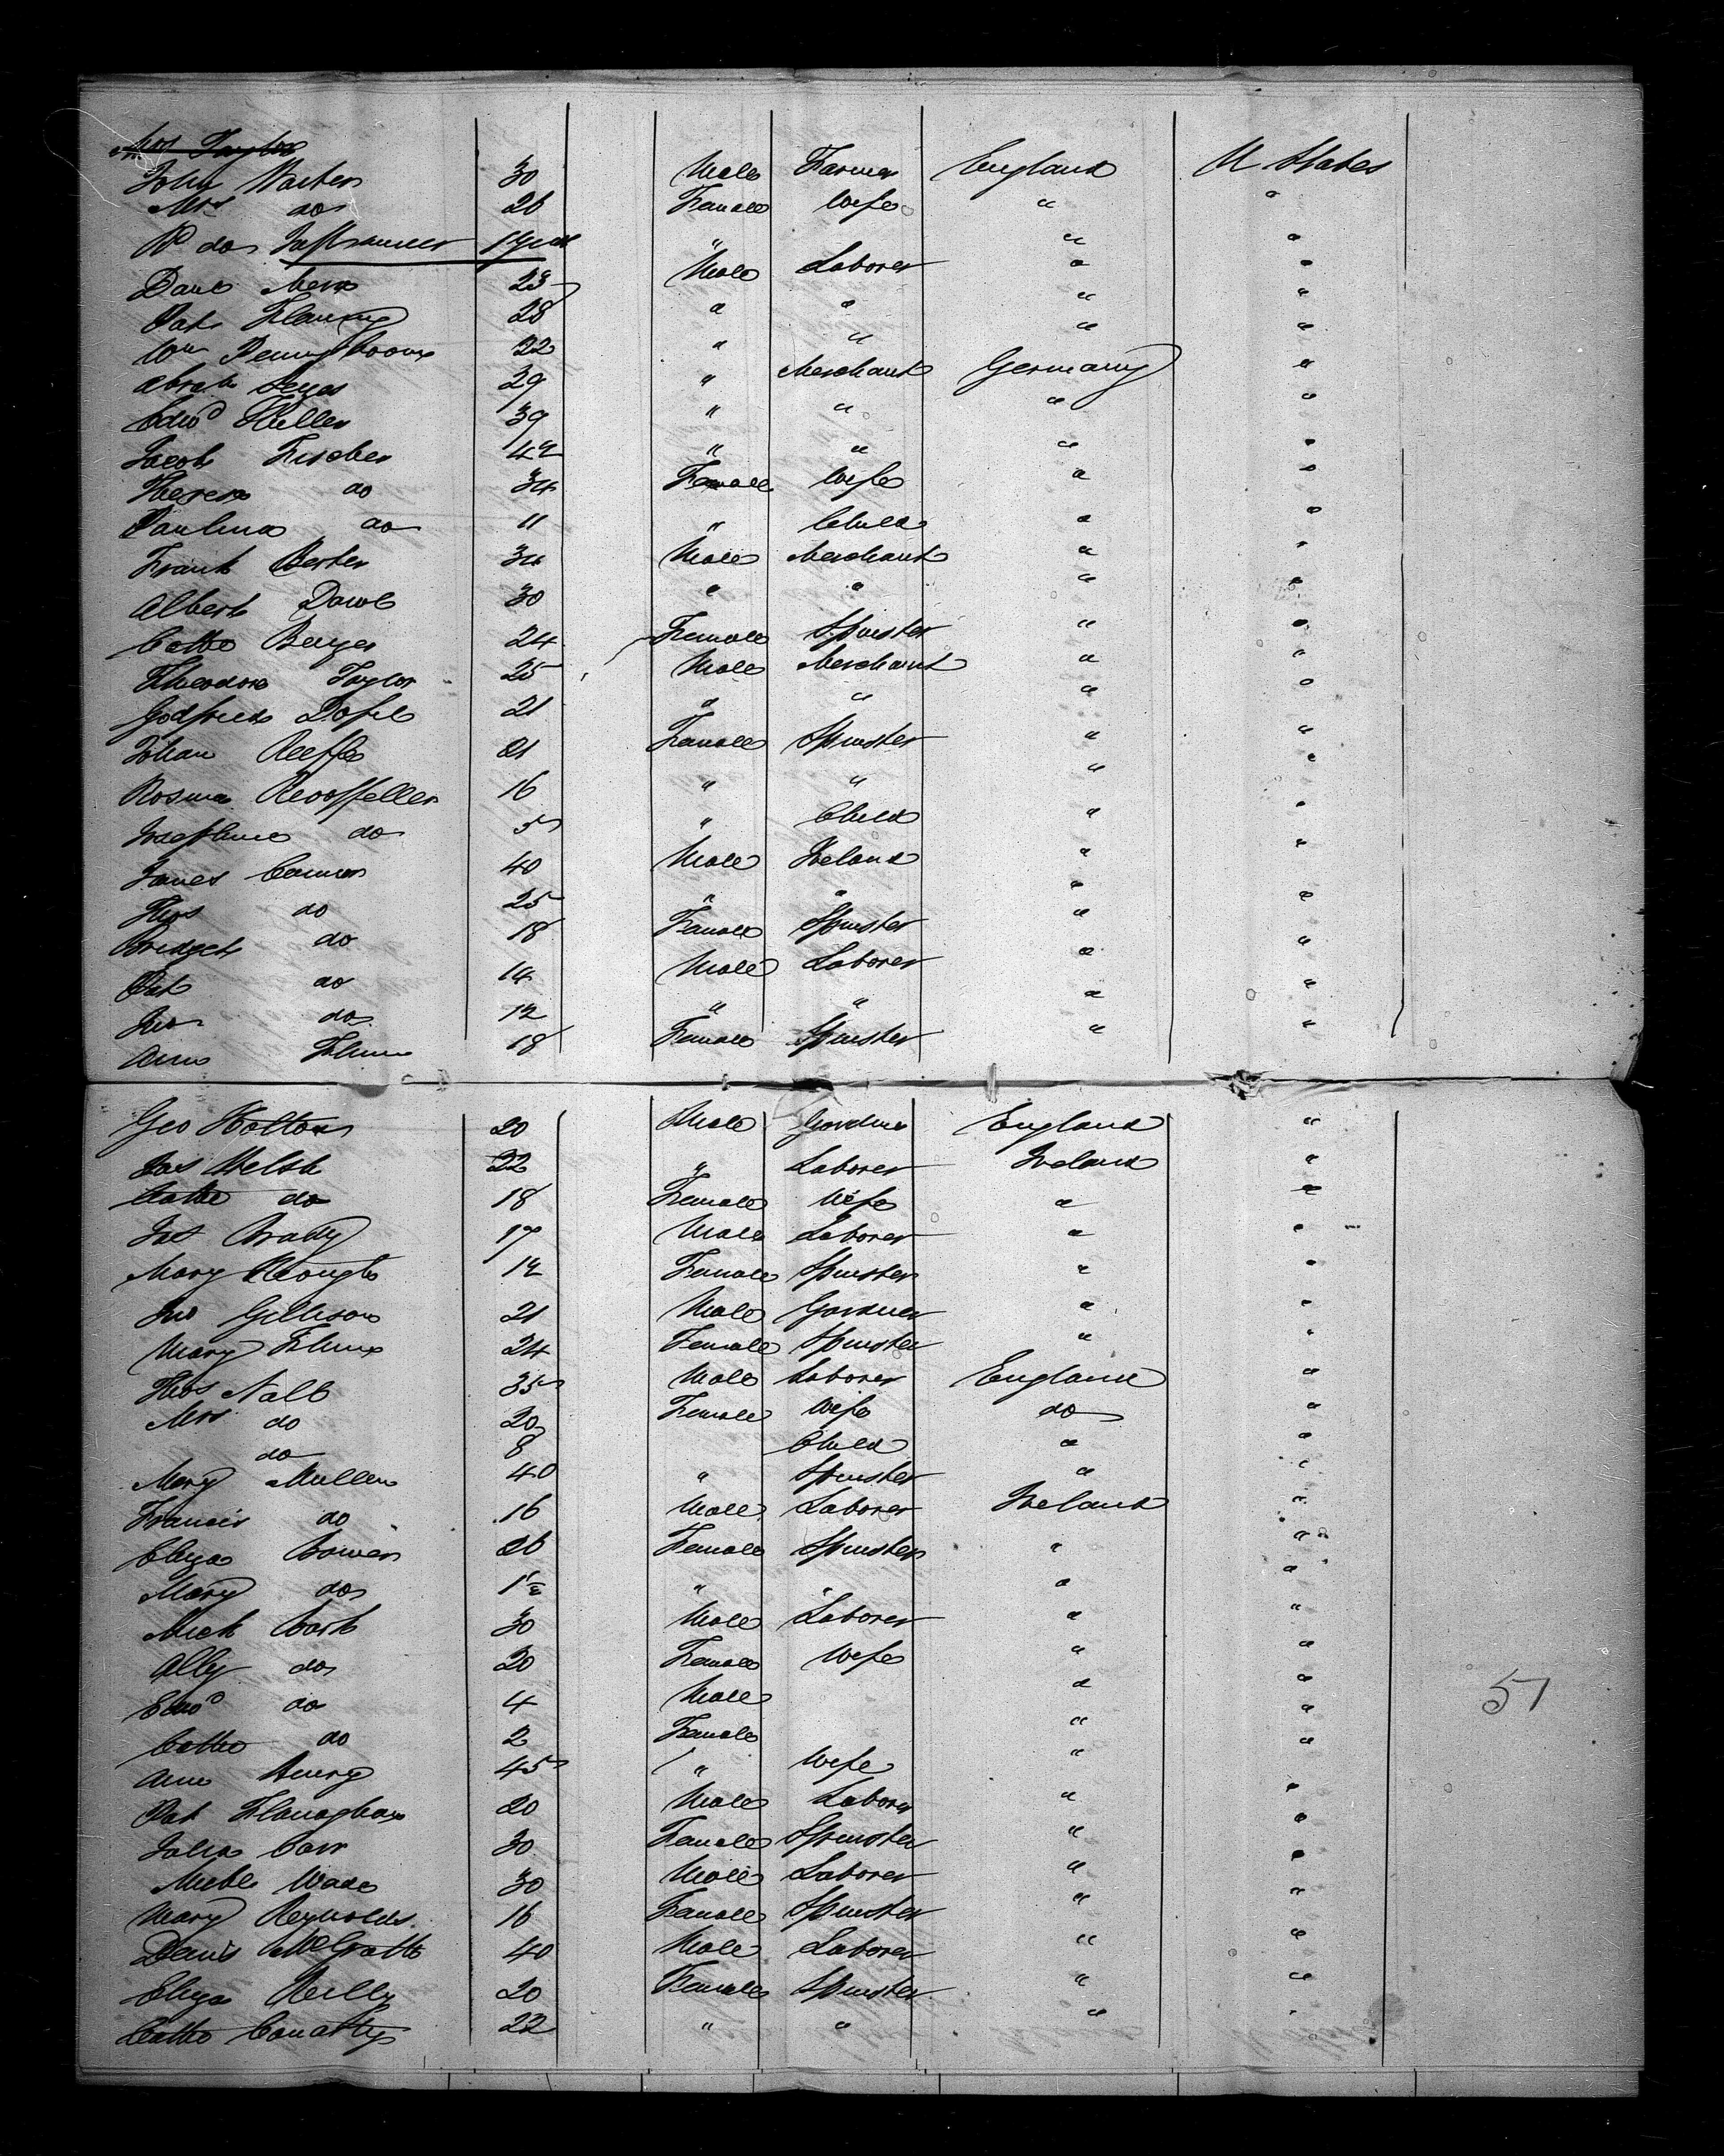 Mrs Taylor
John Barber 30 Male Farmer England U States
Mrs do 26 Female Wife " "
R do Inft 1 year " " "
Danl 23 Male Laborer " "
Pat Flaning 28 " " " "
Wm Pennyboone 22 " " " "
Abrah 29 " Merchant Germany "
Edwd Hiller 39 " " " "
Jacob Fischer 42 " " " "
Theresa do 34 Female Wife " "
Paulina do 11 " Child " "
Frank Berter 34 Male Merchant " "
Albert 30 " " " "
Cathe Berger 24 Female Spinster " "
Theodore Taylor 25 Male Merchant " "
Godfried 21 " " " "
Johan 21 Female Spinster " "
Rosina 16 " " " "
Josephine do 5 " Child " "
James Connor 40 Male Ireland " "
Thos do 25 " " " "
Bridget do 18 Female Spinster " "
Pat do 14 Male Laborer " "
Jno do 12 " " " "
Ann Flinn 18 Female Spinster " "
Geo Holton 20 Male Gardner England "
Jas Welsh 22 " Laborer Ireland "
Cathe do 18 Female Wife " "
Jas Brady 17 Male Laborer " "
Mary Keough 12 Female Spinster " "
Jno Gillison 21 Male Gardner " "
Mary Flinn 24 Female Spinster " "
Thos Nall 35 Male Laborer England "
Mrs do 20 Female Wife do "
do 8 Child " "
Mary Mullen 40 " Spinster " "
Francis do 16 Male Laborer Ireland "
Eliza Bower 26 Female Spinster " "
Mary do " " " "
Mick 30 Male Laborer " "
Ally do 20 Female Wife " "
Edwd do 4 Male " "
Cathe do 2 Female " "
Ann 45 " Wife " "
Pat Flanaghan 20 Male Labor " "
Julia Carr 30 Female Spinster " "
Michl Wade 30 Male Laborer " "
Mary Reynolds 16 Female Spinster " "
Denis McGrath 40 Male Laborer " "
Eliza Reilly 20 Female Spinster " "
Cathe Conatty 22 " " " "
51